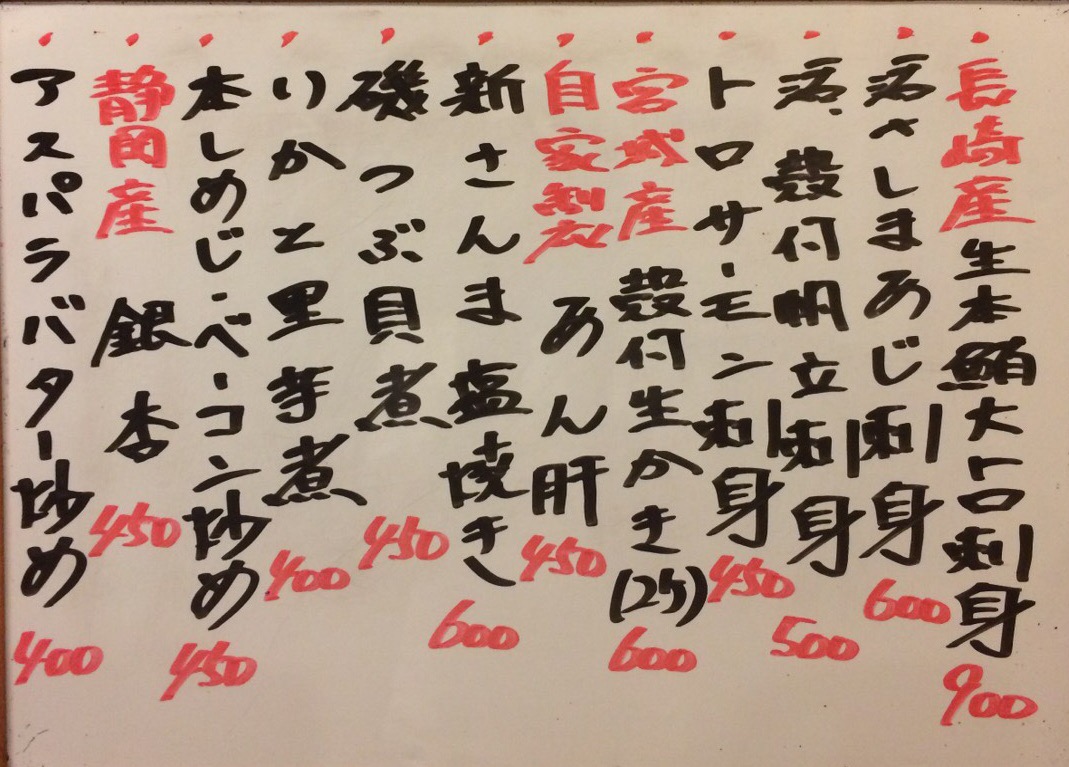 長崎産生本鮪大トロ刺身 900
活〆しまあじ刺身 600
活、殻付帆立刺身 500
トロサーモン刺身 450
宮城産 殻付生かき(2ケ) 600
自家製 あん肝 450
新さんま塩焼き 600
磯つぶ貝煮 450
いかと里芋煮 400
本しめじ・ベーコン炒め 450
静岡産 銀杏 450
アスパラバター炒め 400